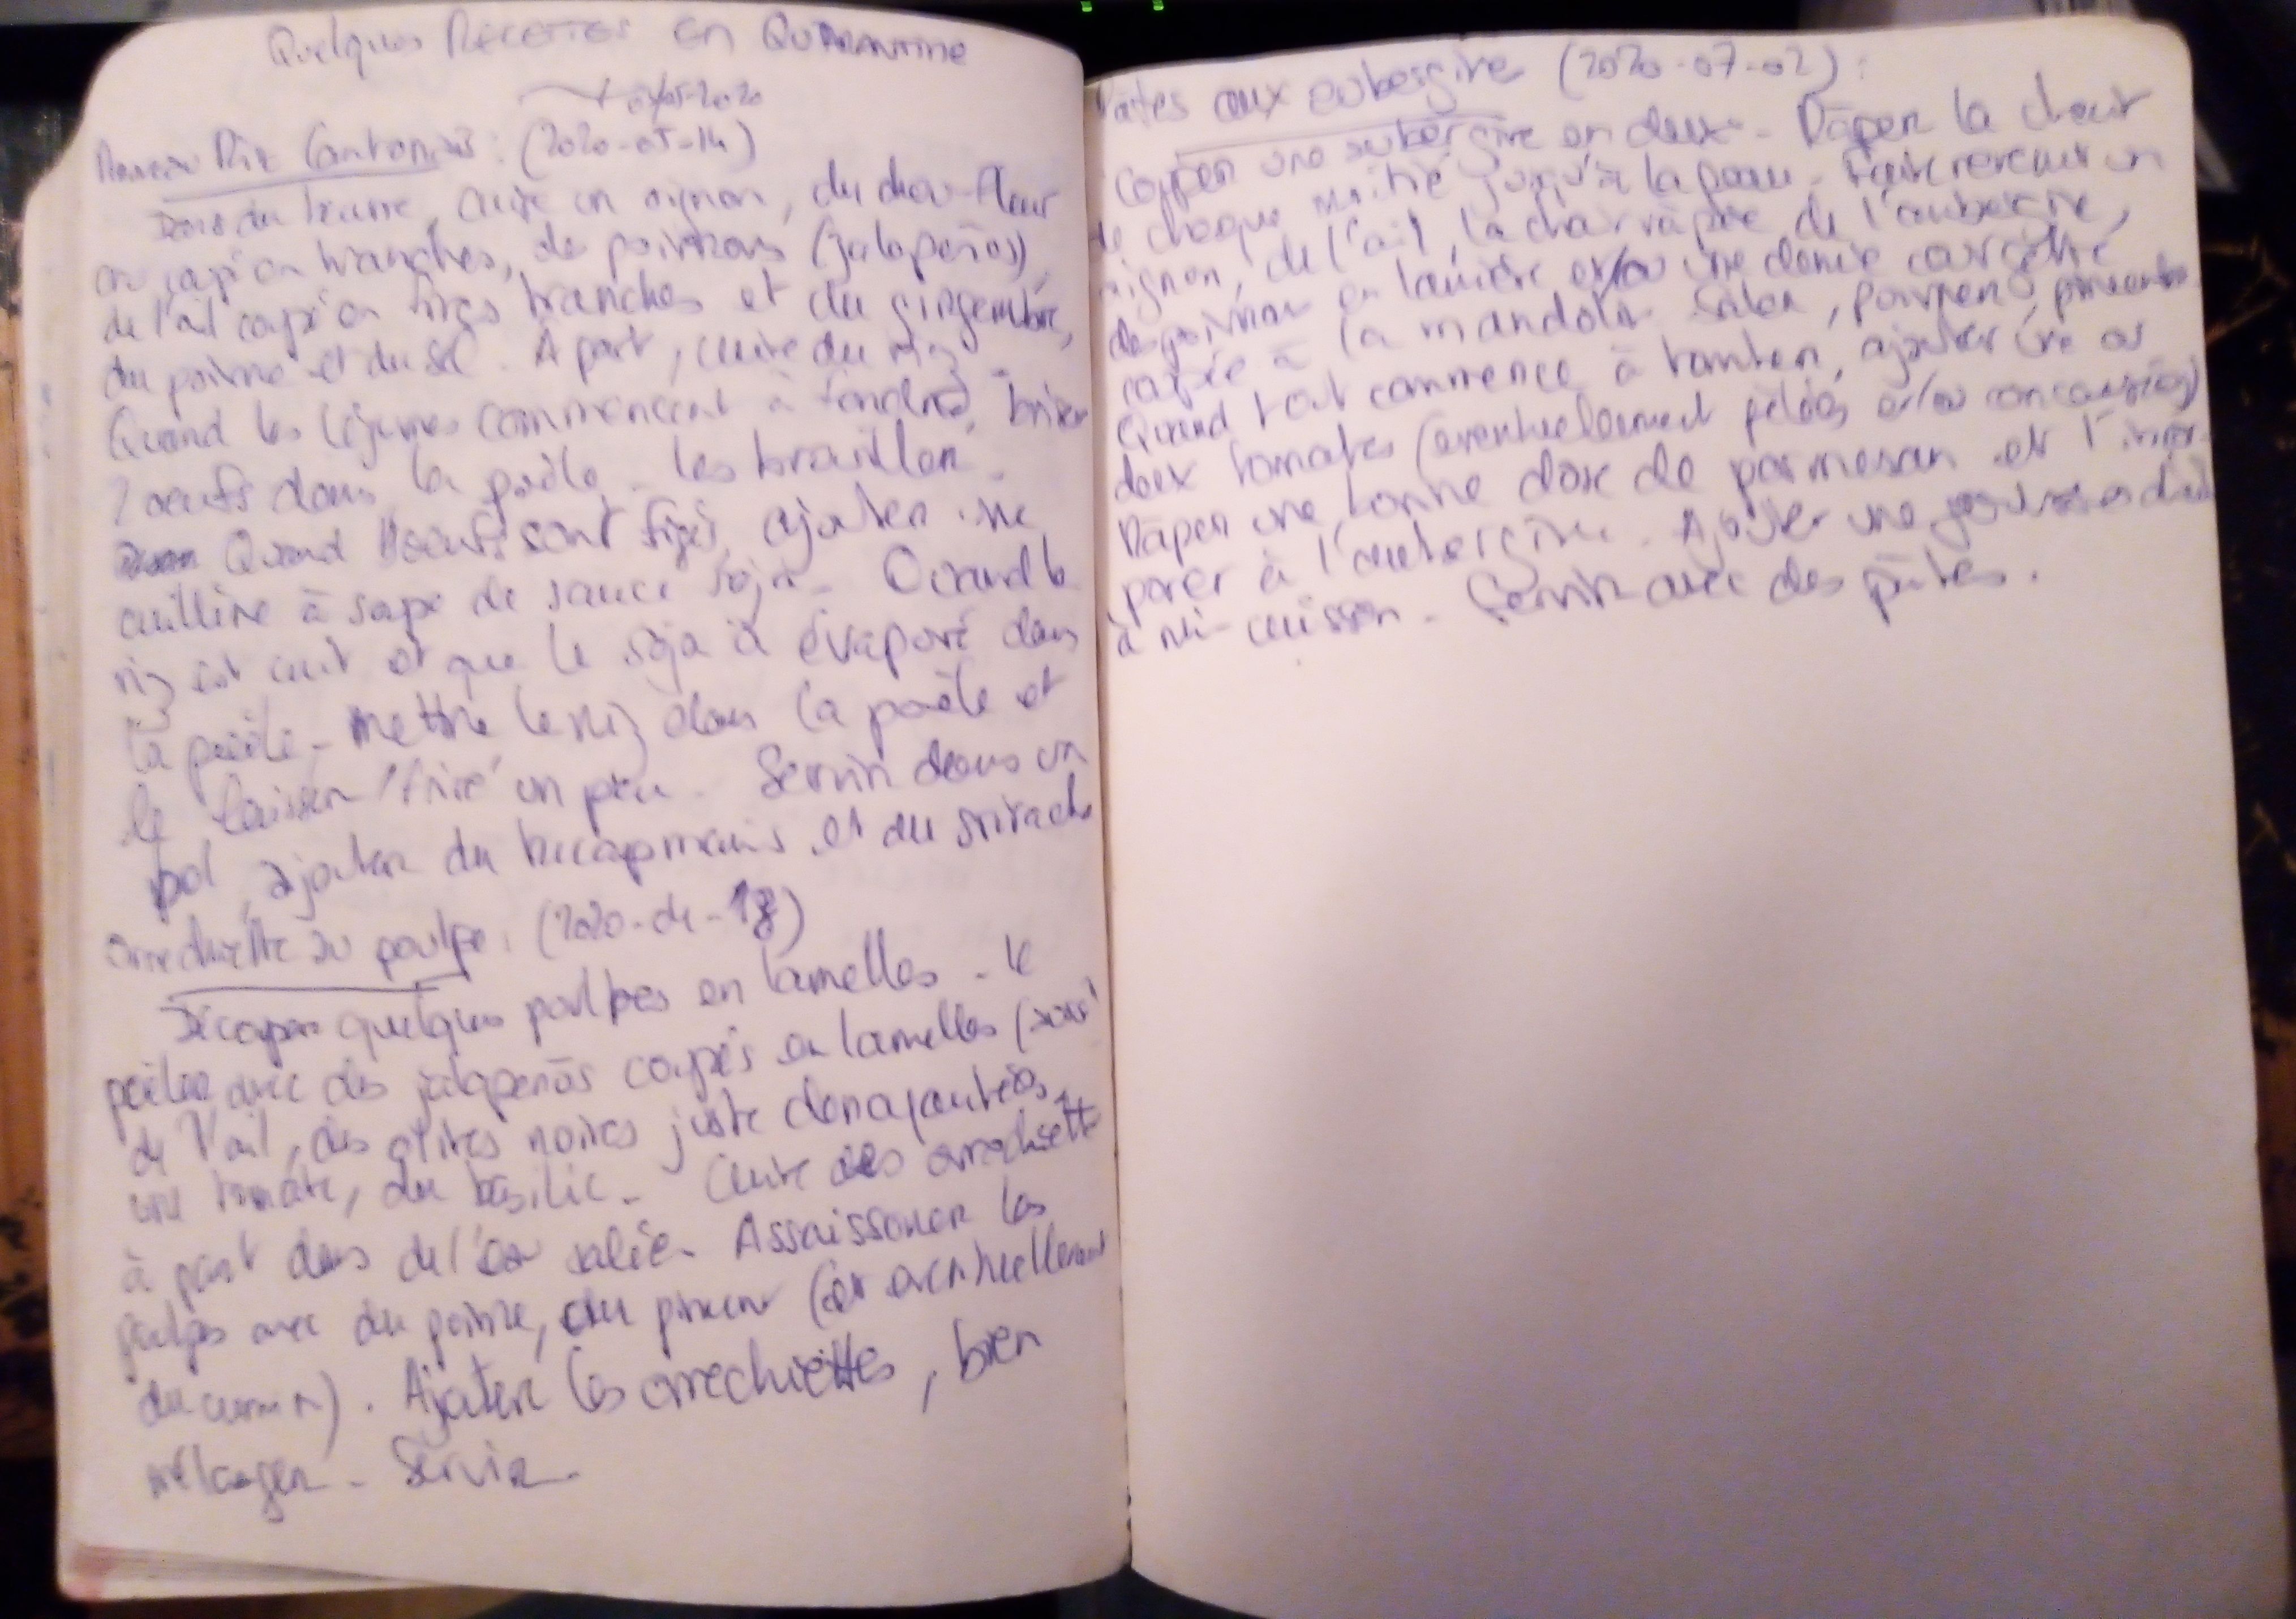 Quelques Recettes en Quarantine
Riz Cantonais : (2020-05-14)
Dans du beurre, cuire un oignon, du chou-fleur
coupé en tranches, de poivrons (jalapeños),
de l'ail coupé en fines tranches et du gingembre,
du poivre et du sel. À part, cuire du riz.
Quand les légumes commencent à fondre, briser
2 oeufs dans la poêle - les brouiller.
Quand oeufs sont figés, ajouter une
cuillère à soupe de sauce soja. Quand le
riz est cuit et que le soja a évaporé dans
la poêle - mettre le riz dans la poêle et
le laisser frire un peu. Servir dans un
bol, ajouter du et du sriracha
Orrechiette au poulpe : (2020- -18)
Découper quelques poulpes en lamelles - le
poêler avec des jalapeños coupés en lamelles
de l'ail, des olives noires juste dénoyautées,
une tomate, du basilic. Cuire des orrechiette
à part dans de l'eau salée. Assaissoner les
poulpes avec du poivre, du piment (et eventuellement
du cumin). Ajouter les orrechiettes, bien
mélanger. Servir.
Pates aux aubergine (2020-07-02) :
Couper une aubergine en deux. Râper la chair
de chaque moitié jusqu'à la peau. Faire revenir un
oignon, de l'ail, la chair râpée de l'aubergine,
des poivron en lanière et/ou une demie courgette
coupée à la mandolin. Saler, poivrer, pimenter
Quand tout commence à tomber, ajouter une ou
deux tomates (eventuellement pelées et/ou concassées)
Râper une bonne dose de parmesan et l'incor-
porer à l'aubergine. Ajouter une gousse d'ail
à mi-cuisson. Servir avec des pâtes.